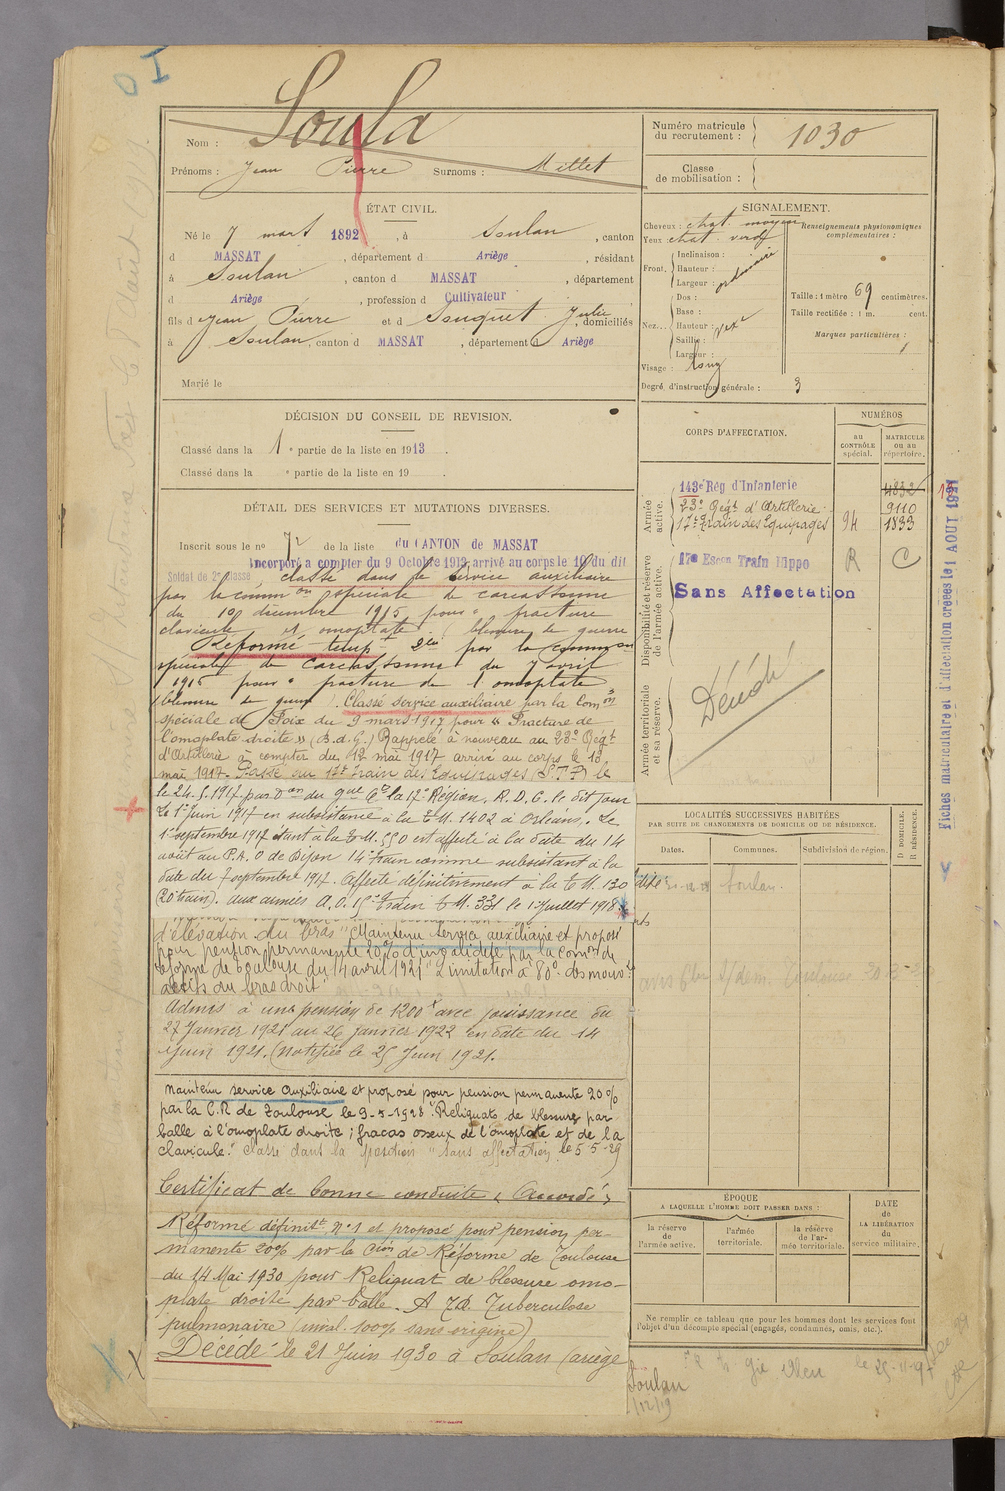 OI
Nom : Soula
Prénoms : Jean Pierre Surnoms : Millet
ÉTAT CIVIL.
Né le 7 mars 1892, à Soulan, canton
d MASSAT, département d Ariège, résidant
à Soulan, canton d MASSAT, département
d Ariège, profession d Cultivateur
fils d Jean Pierre et d Souquet Julie, domiciliés
à Soulan, canton d MASSAT, département d Ariège
Marié le
DÉCISION DU CONSEIL DE REVISION.
Classé dans la 1 e partie de la liste en 1913.
Classé dans la e partie de la liste en 19 .
DÉTAIL DES SERVICES ET MUTATIONS DIVERSES.
Inscrit sous le no 72 de la liste du CANTON de MASSAT
Incorporé a compter du 9 Octobre 1913, arrivé au corps le 10 du dit
Soldat de 2e classe, classé dans le service auxiliaire
par la common spéciale de Carcassonne
du 10 décembre 1915 pour " fracture
clavicule et omoplate" (blessure de guerre
Réformé temp. par la common
spéciale de Carcassonne du 7 avril
pour " fracture de l'omoplate
blessure de guerre. Classé service auxiliaire par la Comon
spéciale de Foix du 9 mars 1917 pour " Fracture de
l'omoplate droite » (B.d.G.) Rappelé à nouveau au 23e Régt
d'Artillerie à compter du 12 mai 1917 arrivé au corps le 13
mai 1917. Passé au 17e train des Equipages le
le 24.5.1917 par Don du gal Ct la 17e Région. R.D.C. le dit jour
Le 1er Juin 1917 en subsistance à la T.M. 1402 à Orléans. Le
1er septembre 1917 étant à la T.M. 550 est affecté à la date du 14
août au P.A.O de Dijon 14e train comme subsistant à la
date du 7 septembre 1917. Affecté définitivement à la T.M. 130
(20e train). aux armées A.O. train T.M. 331 le 1er Juillet 1918.
d'élévation du bras" Maintenu service auxiliaire et proposé
pour pension permanente 20% d'invalidité par la Comon de
réforme de Toulouse du 14 avril 1921 "Limitation à 80° des mouvts
actifs du bras droit"
Admis à une pension de 1200 f avec jouissance du
27 Janvier 1921 au 26 janvier 1922 en date du 14
Juin 1921. (notifiée le 25 Juin 1921.
Maintenu service auxiliaire et proposé pour pension permanente 20%
par la C.R de Toulouse le 9-5-1928 "Reliquats de blessure par
balle à l'omoplate droite ; fracas osseux de l'omoplate et de la
clavicule." classé dans la position "sans affectation" le 5-5-29
Certificat de bonne conduite « Accordé »
Réformé définitt n°1 et proposé pour pension per-
manente 20% par la Cion de Réforme de Toulouse
du 14 Mai 1930 pour Reliquat de blessure omo-
plate droite par balle. A 7d. Tuberculose
pulmonaire (inval. 100% sans origine)
Décédé le 21 Juin 1930 à Soulan (ariège
Numéro matricule
du recrutement : 1030
Classe
de mobilisation :
SIGNALEMENT.
Cheveux : chat. moyen
Yeux chat. verd
Front. Inclinaison :
Hauteur :
Largeur : ordinaire
Nez... Dos :
Base :
Hauteur :
Saillie :
Largeur :
Visage : long
Degré d'instruction générale : 3
Renseignements physionomiques
complémentaires :
Taille : 1 mètre 69 centimètres.
Taille rectifiée : 1 m. cent.
Marques particulières :
CORPS D'AFFECTATION.
NUMÉROS
au
CONTRÔLE
spécial.
MATRICULE
ou au
répertoire.
Armée
active.
143e Rég d'Infanterie 4832
23e Régt d'Artillerie 9110
17e Train des Equipages 94 1833
Disponibilité et réserve
de l'armée active.
17e Escon Train Hippo R C
Sans Affectation
Armée territoriale
et sa réserve.
Décédé
LOCALITÉS SUCCESSIVES HABITÉES
PAR SUITE DE CHANGEMENTS DE DOMICILE OU DE RÉSIDENCE.
Dates.
Communes.
Subdivision de région.
D DOMICILE.
R RÉSIDENCE.
Soulan.
Toulouse
ÉPOQUE
A LAQUELLE L'HOMME DOIT PASSER DANS :
la réserve
de l'armée active.
l'armée
territoriale.
la réserve
de l'ar-
mée territoriale.
DATE
de
LA LIBÉRATION
du
service militaire.
Ne remplir ce tableau que pour les hommes dont les services font
l'objet d'un décompte spécial (engagés, condamnés, omis, etc.).
Soulan
Fiches matriculaire et d'affectation créées le 1 AOUT 1921